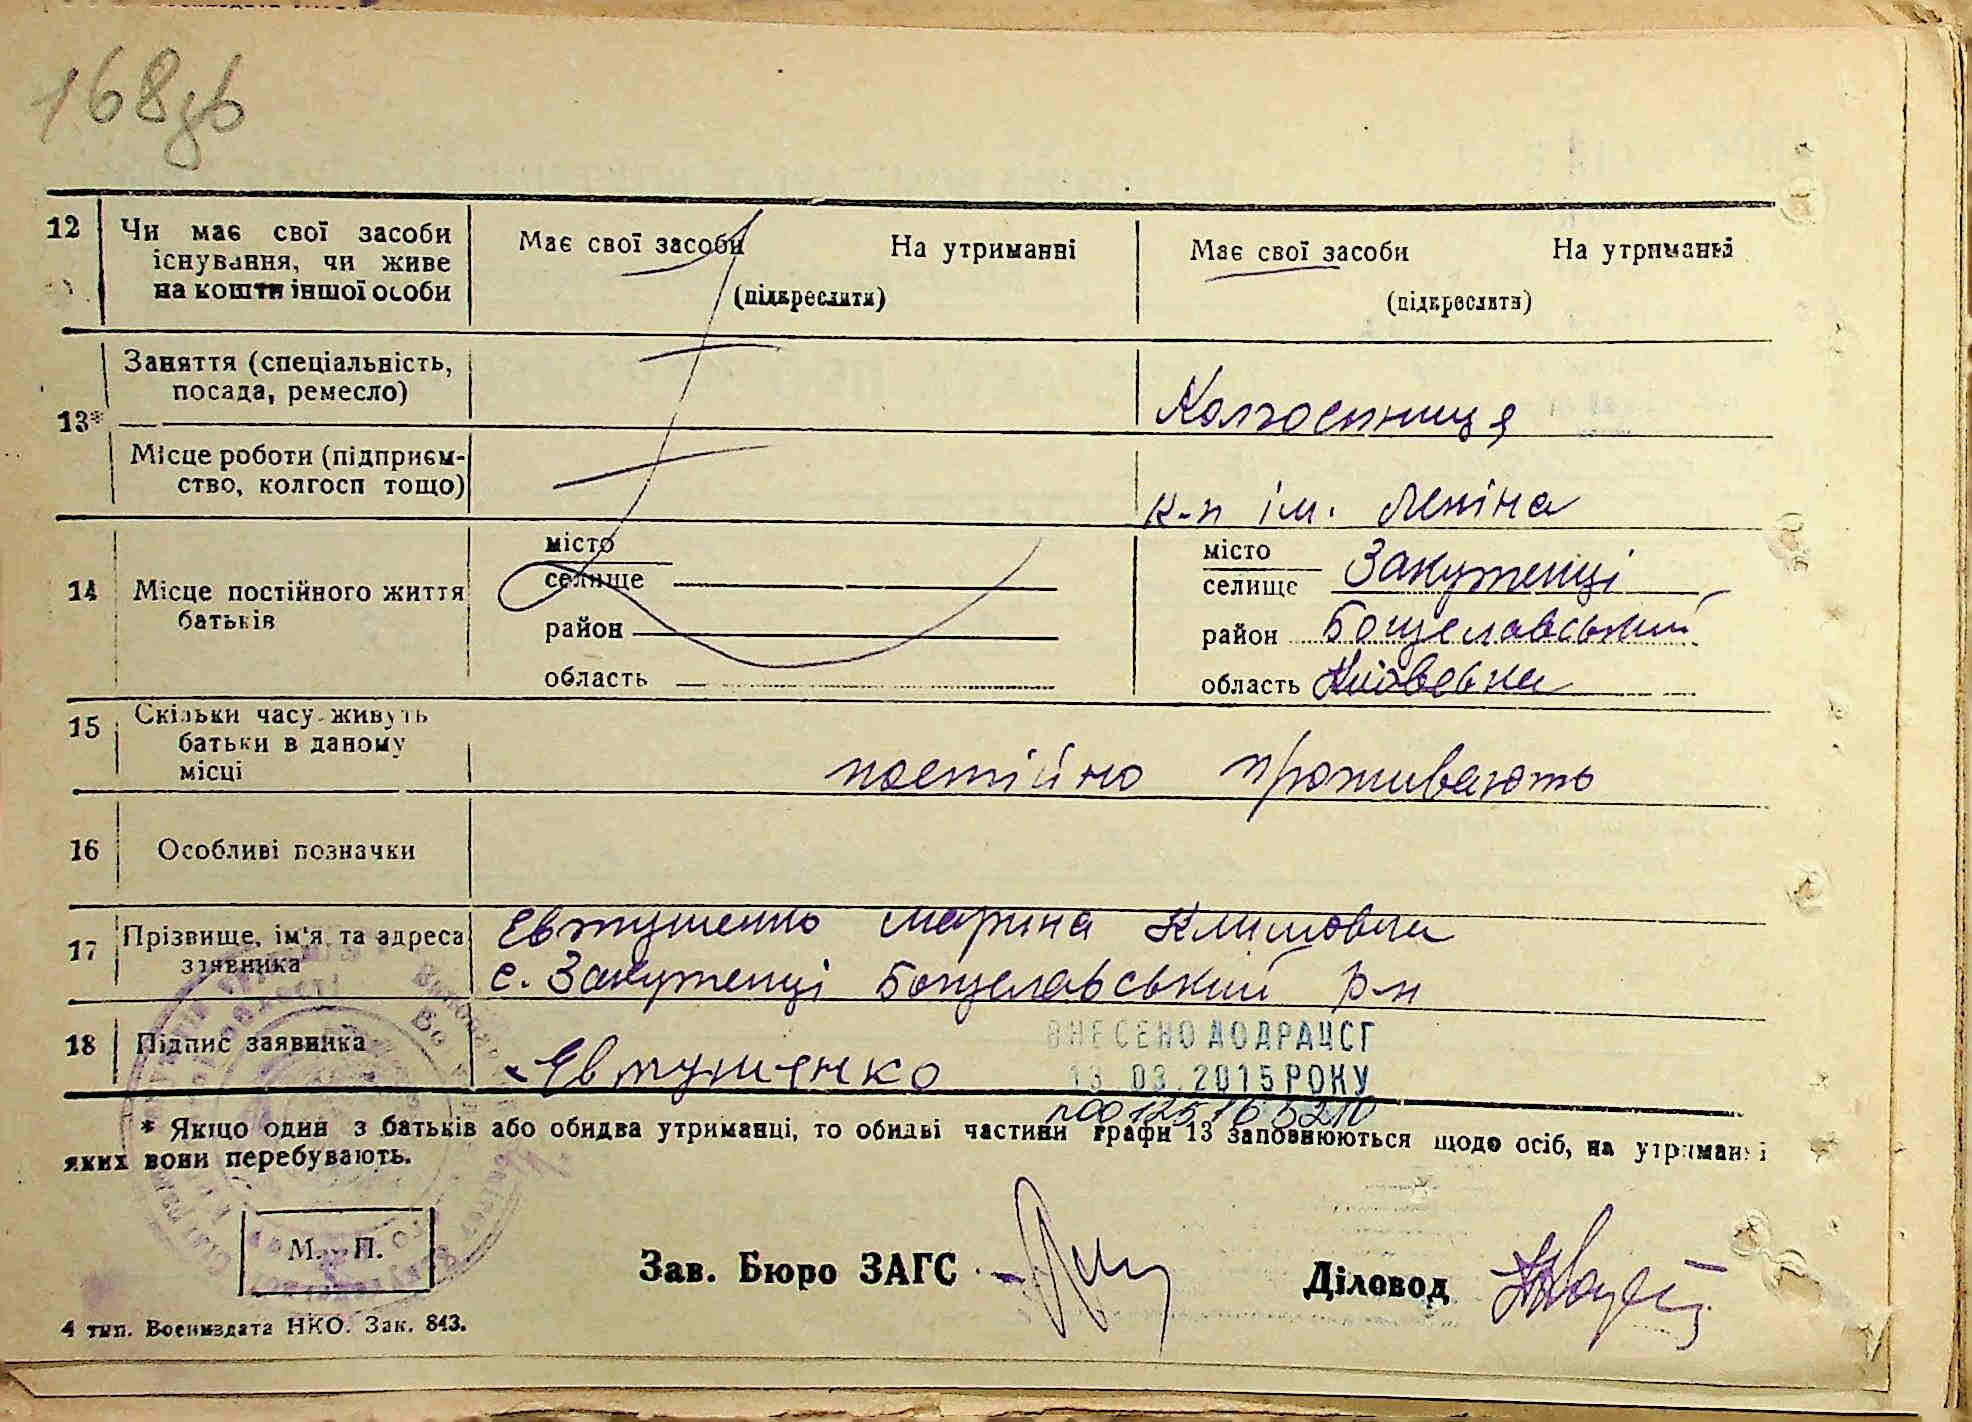 168зв
12
Чи має свої засоби існування, чи живе на кошти іншої особи
Має свої засоби
На утриманні
(підкреслити)
Має свої засоби
На утриманні
(підкреслити)
13*
Заняття (спеціальність, посада, ремесло)
Колгоспниця
Місце роботи (підприєм-
ство, колгосп тощо)
к-п ім. Леніна
14
Місце постійного життя батьків
місто
селище
район
область
місто
селище Закутенці
район Богуславський
область Київська
15
Скільки часу живуть батьки в даному місці
постійно проживають
16
Особливі позначки
17
Прізвище, ім'я та адреса заявника
Євтушенко Марина Климовна
с. Закутенці Богуславський р-н
18
Підпис заявника
Явтушенко
ВНЕСЕНО ДО ДРАЦСГ
13 03. 2015 РОКУ
* Якщо один з батьків або обидва утриманці, то обидві частини графи 13 заповнюються щодо осіб, на утриманні
яких вони перебувають.
М. П.
Зав. Бюро ЗАГС
Діловод
4 тип. Воениздата НКО. Зак. 843.